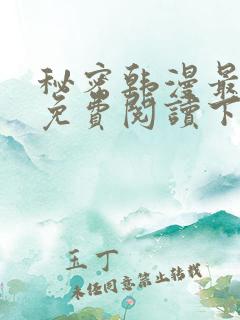 秘密韩漫最
免費閱讀下
玉丁
未经同意禁止转载